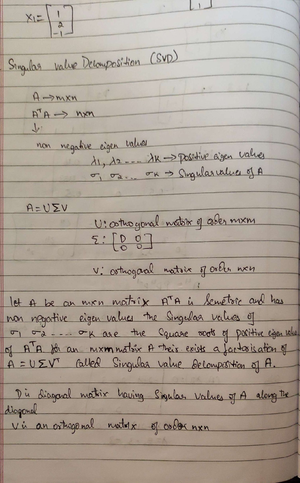 1
x₁= [1
2
-1]
Singular value Decomposition (SVD)
A → mxn
AᵀA → nxn
↓
non negative eigen values
λ₁, λ₂ .... λk → positive eigen values
σ₁ σ₂ .... σk → Singular values of A
A = UΣV
U: orthogonal matrix of order mxm
Σ: [D 0
0 0]
V: orthogoal matrix of order nxn
let A be an mxn matrix AᵀA is Semetric and has
non negative eigen values the Singular values of
σ₁ σ₂ .... σk are the Square roots of positive eigen value
of AᵀA for an mxm matrix A their exists a factorisation of
A = UΣVᵀ called Singular value decomposition of A.
D is diagonal matrix having Singular values of A along the
diagonal
V is an orthogonal matrix of order nxn